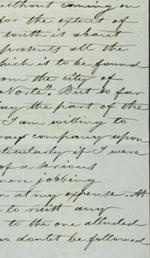 without coming on
for the extent of
worth is about
presents all the
which is to be found
on the city of
Norte". But so far
say the part of the
I am willing to
any company upon
ticularly if I were
of a serious
were jobbing
at my expense. At
to visit any
to the one alluded
no doubt be followed